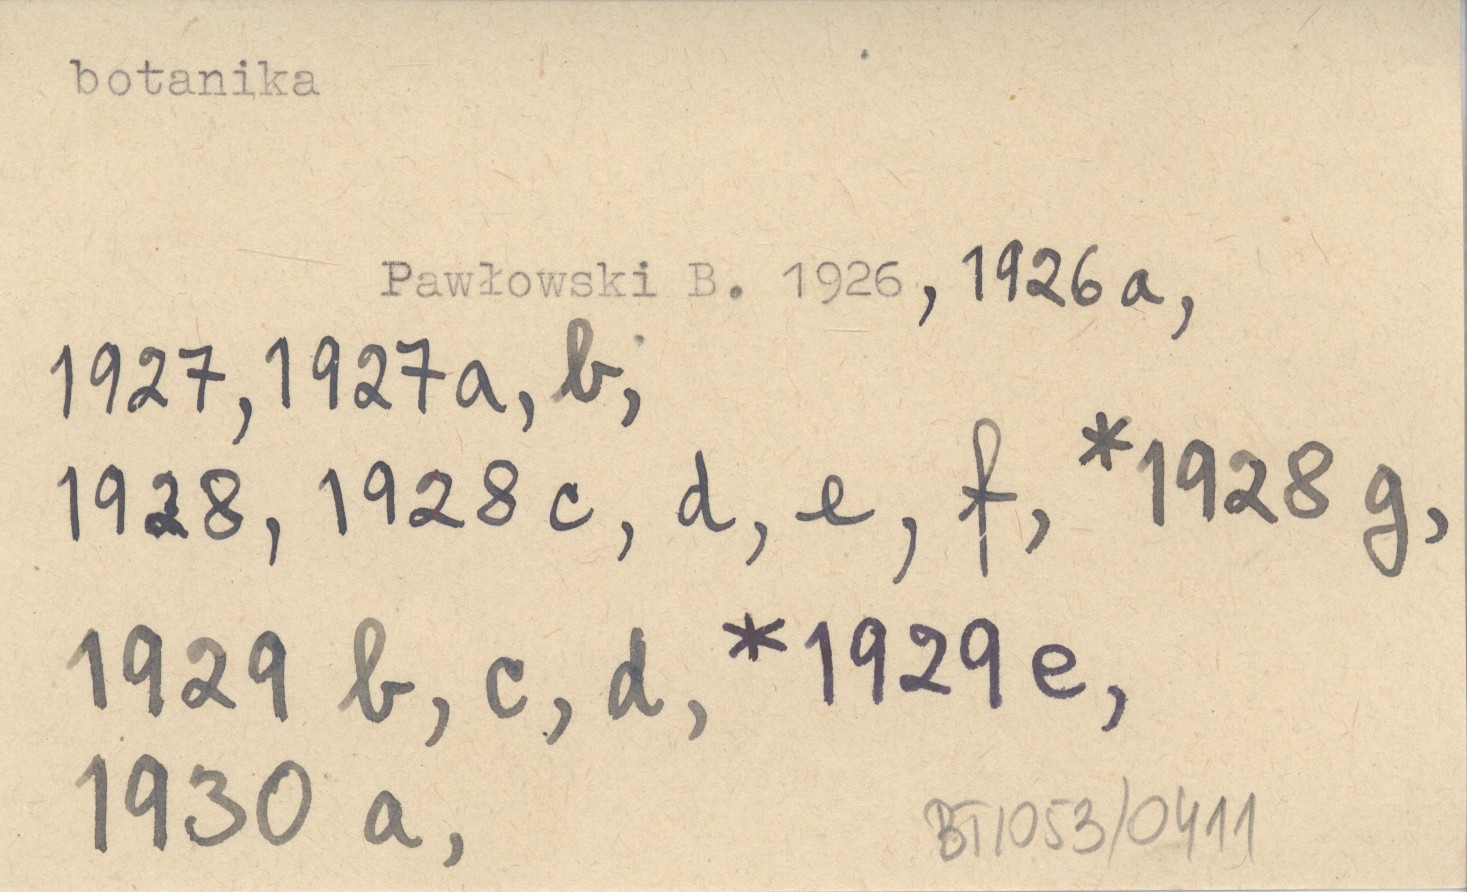 botanika
Pawłowski B. 1926, 1926a,
1927, 1927a, b,
1928, 1928c, d, e, f, *1928g,
1929 b, c, d, *1929e,
1930 a,
BT1053/0411